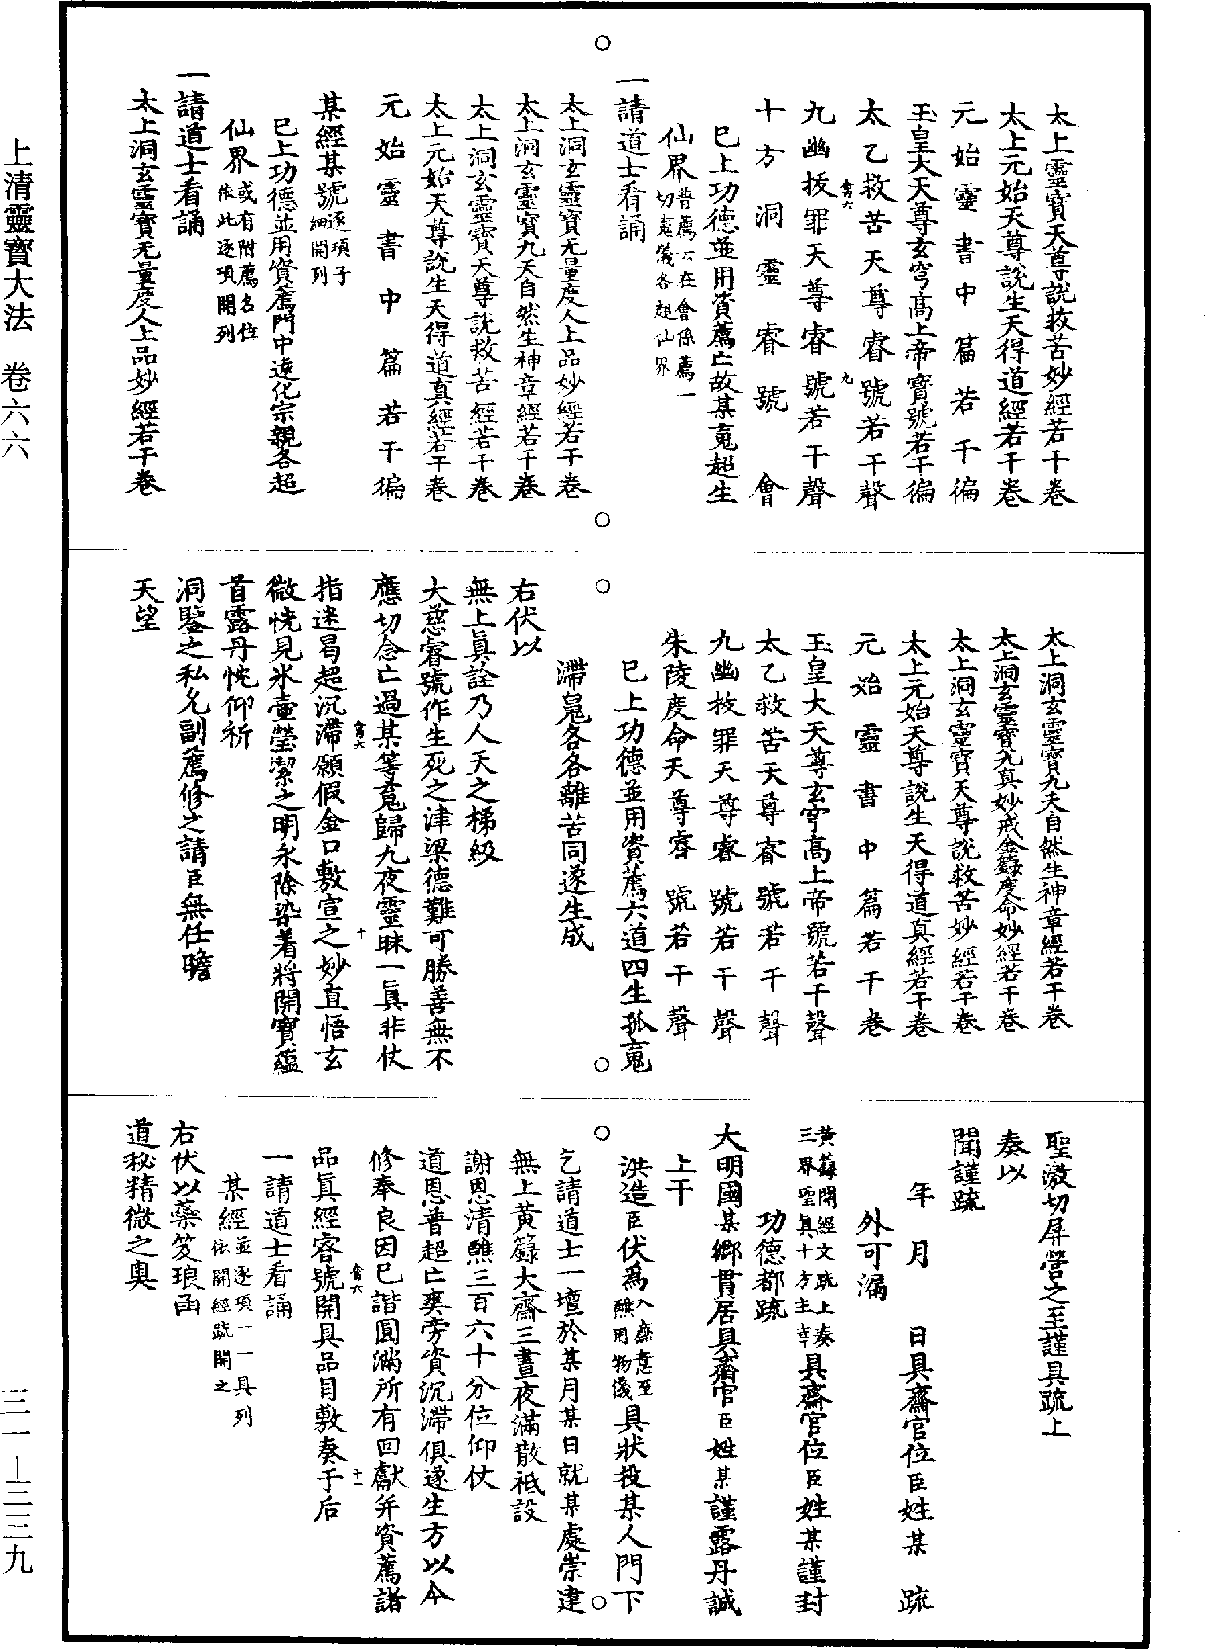 太上靈寶天尊說救苦妙經若干卷
太上元始天尊說生天得道經若干卷
元始靈書中篇若干徧
玉皇大天尊玄穹高上帝寶號若干徧
太乙救苦天尊睿號若干聲
九幽拔罪天尊睿號若干聲
十方洞靈睿號 會
已上功德並用資薦亡故某䰟超生
仙界
一請道士看誦
太上洞玄靈寶无量度人上品妙經若干卷
太上洞玄靈寶九天自然生神章經若干卷
太上洞玄靈寶天尊說救苦經若干卷
太上元始天尊說生天得道真經若干卷
元始靈書中篇若干徧
某經某號逐項子細開列
已上功德並用資薦門中遠化宗親各超
仙界或有附薦名位依此逐項開列
一請道士看誦
太上洞玄靈寶无量度人上品妙經若干卷
太上洞玄靈寶九天自然生神章經若干卷
太上洞玄靈寶九真妙戒金籙度命妙經若干卷
太上洞玄靈寶天尊說救苦妙經若干卷
太上元始天尊說生天得道真經若干卷
元始靈書中篇若干卷
玉皇大天尊玄穹高上帝號若干聲
太乙救苦天尊睿號若干聲
九幽拔罪天尊睿號若干聲
朱陵度命天尊睿號若干聲
已上功德並用資薦六道四生孤䰟
滯䰟各各離苦同遂生成
右伏以
無上真詮乃人天之梯級
大慈睿號作生死之津梁德難可勝善無不
應切念亡過某等䰟歸九夜靈昧一真非仗
指迷曷超沉滯願假金口敷宣之妙直悟玄
微恍見氷壺瑩潔之明永除染着將開寶蘊
首露丹忱仰祈
洞鑒之私允副薦修之請臣無任瞻
天望
聖激切屏營之至謹具疏上
奏以
聞謹疏
年 月 日具齋官位臣姓某 疏
外可漏
黃籙開經文疏上奏三界靈真十方主宰具齋官位臣姓某謹封
功德都疏
大明國某鄉貫居具齋官臣姓某謹露丹誠
上干
洪造臣伏爲入齋意至醮用物儀具狀投某人門下
乞請道士一壇於某月某日就某處崇建
無上黃籙大齋三晝夜滿散祇設
謝恩清醮三百六十分位仰仗
道恩普超亡爽旁資沉滯俱遂生方以今
修奉良因已諧圓滿所有回獻并資薦諸
品真經睿號開具品目敷奏于后
一請道士看誦
某經並逐項一一具列依開經疏開之
右伏以蘂笈琅函
道秘精微之奥
上清靈寶大法 卷六六
三一—三三九